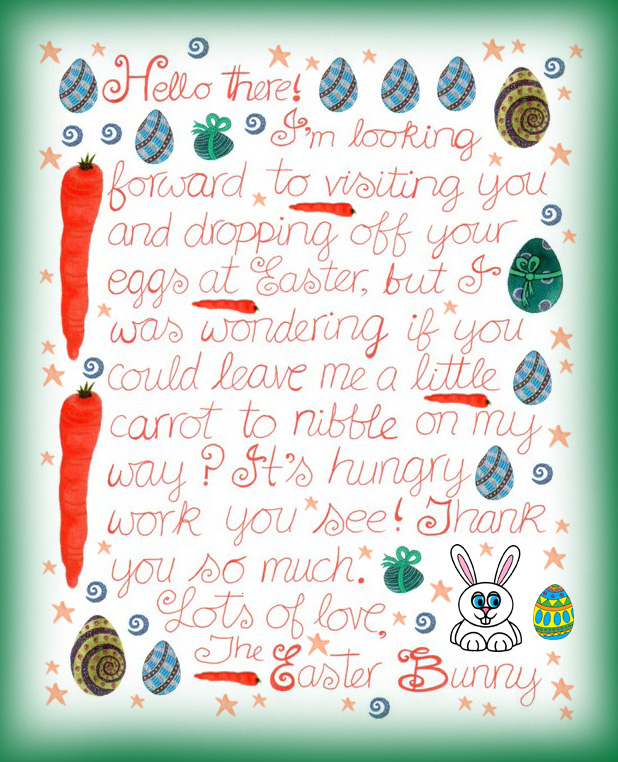 Hello there!
I'm looking
forward to visiting you
and dropping off your
eggs at Easter, but I
was wondering if you
could leave me a little
carrot to nibble on my
way? It's hungry
work you see! Thank
you so much.
Lots of love,
The Easter Bunny